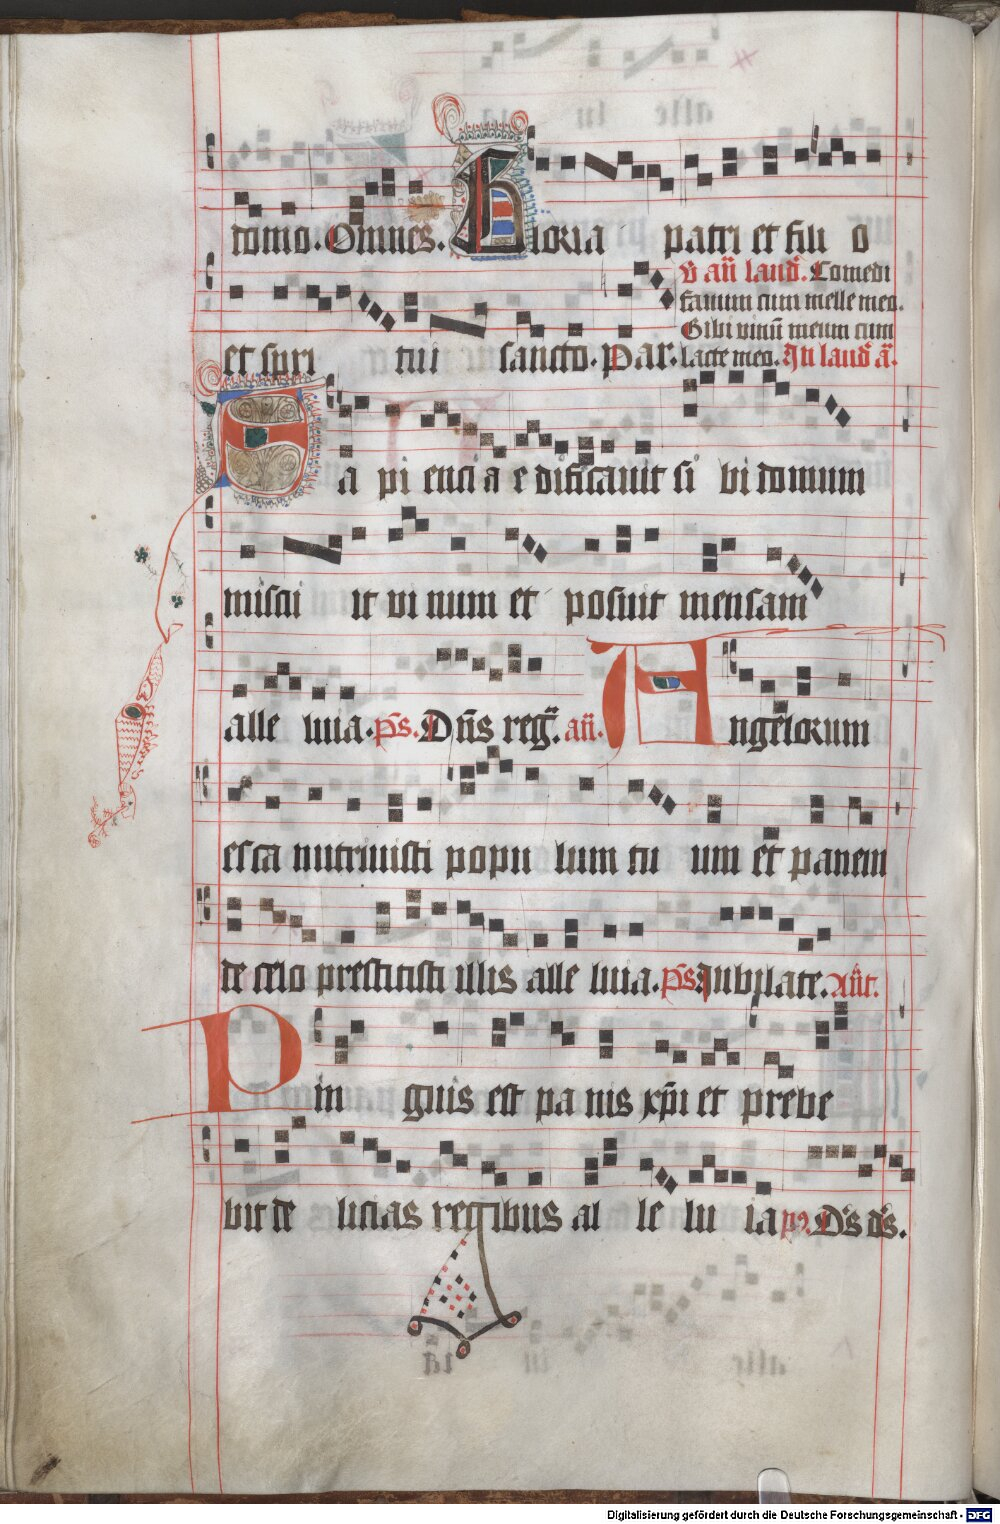 domo. Omnes. Gloria patri et fili o
v̄ añ laud̄. Comedi
favum cum melle meo.
Bibi vinū meum cum
et spiri tui sancto. Par. lacte meo. In laud̄ a̅.
Sa pi enci a e dificavit si bi domum
miscu it vi num et posuit mensam
alle luia. ps̄. Dn̄s reg̅. añ. Angelorum
esca nutrivisti popu lum tu um et panem
de celo prestitisti illis alle luia. ps̄. Jubilate. Añt.
Pin guis est pa nis xp̄i et prebe
bit de licias regibus al le lu ia ps. Ds ds.
Digitalisierung gefördert durch die Deutsche Forschungsgemeinschaft - DFG